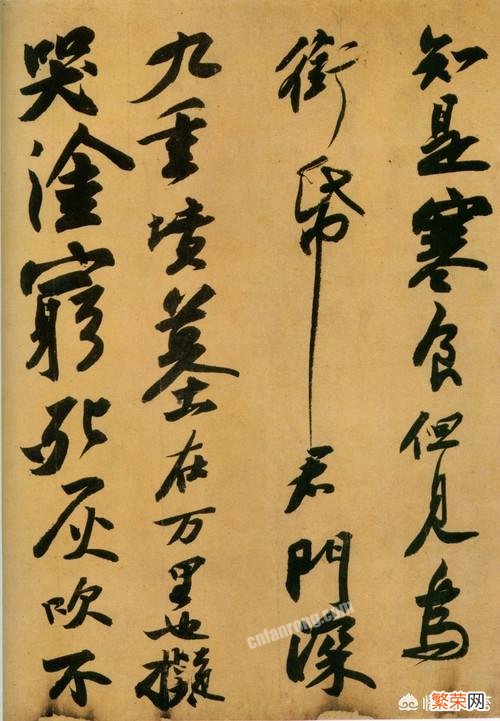 知是寒食但見烏
銜帋君門深
九重墳墓在万里也擬
哭塗窮死灰吹不
cnfanrong.com
繁荣网